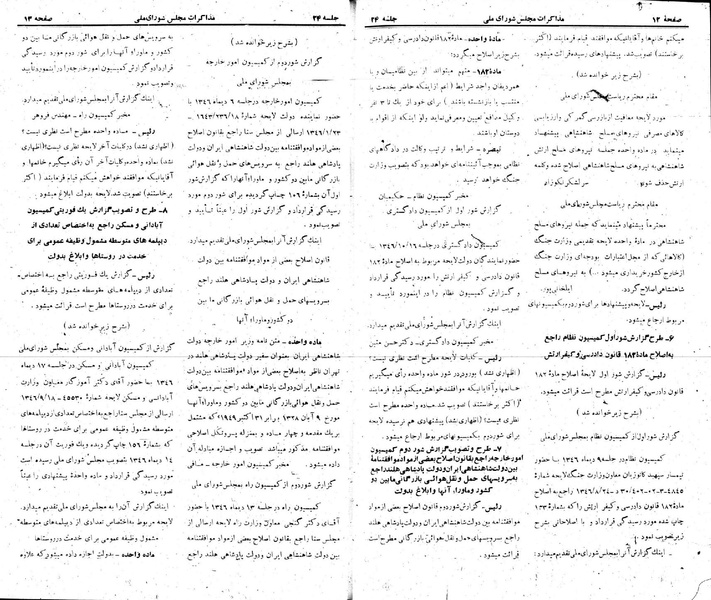 صفحهٔ ۱۲
مذاکرات مجلس شورای ملی
جلسه ۲۴
میکنم خانمها و آقایانیکه موافقند قیام فرمایند (اکثر
برخاستند) تصویب شد. پیشنهادهای رسیده قرائت میشود.
(بشرح زیر خوانده شد)
مقام محترم ریاست مجلس شورای ملی
در مورد لایحه معافیت از بازرسی گمرکی و ارزیابی
کالاهای مصرفی نیروهای مسلح شاهنشاهی پیشنهاد
مینماید در ماده واحده جمله نیروهای مسلح ارتش
شاهنشاهی به نیروهای مسلح شاهنشاهی اصلاح شده و کلمه
ارتش حذف شود. سرلشکر نکوزاد
مقام محترم ریاست مجلس شورای ملی
محترماً پیشنهاد مینماید که جمله نیروهای مسلح
شاهنشاهی در مادهٔ واحده لایحه تقدیمی وزارت جنگ
(کالاهائی که از محل اعتبارات بودجه‌ای وزارت جنگ
از خارج کشور خریداری میشود ...) به نیروهای مسلح
شاهنشاهی اصلاح گردد. ایلخانی‌پور.
رئیس- لایحه و پیشنهادها برای شور دوم به کمیسیونهای
مربوط ارجاع میشود.
۶- طرح گزارش شور اول کمیسیون نظام راجع
به اصلاح مادهٔ ۱۸۲ قانون دادرسی و کیفر ارتش
رئیس- گزارش شور اول لایحهٔ اصلاح مادهٔ ۱۸۲
قانون دادرسی و کیفر ارتش مطرح است قرائت میشود.
(بشرح زیر خوانده شد)
گزارش شور اول از کمیسیون نظام بمجلس شورای ملی
چاپ شده مورد رسیدگی قرارداد و با اصلاحاتی بشرح
زیر تصویب نمود.
اینک گزارش آنرا بمجلس شورای ملی تقدیم میدارد:
ماده واحده- مادهٔ ۱۸۲ قانون دادرسی و کیفر ارتش
بشرح زیر اصلاح میگردد:
مادهٔ ۱۸۲- متهم میتواند از بین نظامیان و یا
همردیفان واجد شرایط (اعم از اینکه حاضر بخدمت یا
منتسب یا بازنشسته باشند) برای خود از یک تا ۳ نفر
وکیل مدافع تعیین و معرفی نماید ولو اینکه از اقوام یا
دوستان او باشند.
تبصره- شرایط و ترتیب وکالت در دادگاههای
نظامی بموجب آئین‌نامه‌ای خواهد بود که بتصویب وزارت
جنگ خواهد رسید.
مخبر کمیسیون نظام - حکیمیان
گزارش شور اول از کمیسیون دادگستری به
مجلس شورای ملی
کمیسیون دادگستری در جلسه ۱۳۴۶/۱۰/۱۶ با
حضور نمایندگان دولت لایحه مربوط به اصلاح مادهٔ ۱۸۲
قانون دادرسی و کیفر ارتش را مورد رسیدگی قرارداد
و گزارش کمیسیون نظام را در اینمورد تأیید و
تصویب نمود.
اینک گزارش آنرا بمجلس شورای ملی تقدیم میدارد.
مخبر کمیسیون دادگستری- دکتر حسن متین
رئیس- کلیات لایحه مطرح است نظری نیست؟
نظری نیست؟ (اظهاری نشد) پیشنهادی هم نرسیده لایحه
برای شور دوم بکمیسیونهای مربوط ارجاع میشود.
۷- طرح و تصویب گزارش شور دوم کمیسیون
امور خارجه راجع بقانون اصلاح بعضی از مواد موافقتنامهٔ
بین دولت شاهنشاهی ایران و دولت پادشاهی هلند راجع
به سرویسهای حمل و نقل هوائی بازرگانی مابین دو
کشور و ماوراء آنها و ابلاغ بدولت
رئیس- گزارش شور دوم قانون اصلاح بعضی از مواد
موافقتنامه بین دولت شاهنشاهی ایران و دولت پادشاهی هلند
راجع بسرویسهای حمل و نقل هوائی بازرگانی مطرح است
قرائت میشود.
جلسه ۲۴
مذاکرات مجلس شورای ملی
صفحه ۱۳
(بشرح زیر خوانده شد)
گزارش شور دوم از کمیسیون امور خارجه
بمجلس شورای ملی
کمیسیون امور خارجه در جلسه ۶ دیماه ۱۳۴۶ با
اول آن بشمارهٔ ۱۰۶ چاپ گردیده برای شور دوم مورد
رسیدگی قرارداد و گزارش شور اول را عیناً تأیید و
تصویب نمود.
اینک گزارش آنرا بمجلس شورای ملی تقدیم میدارد.
قانون اصلاح بعضی از مواد موافقتنامه بین دولت
شاهنشاهی ایران و دولت پادشاهی هلند راجع
بسرویسهای حمل و نقل هوائی بازرگانی ما بین
دو کشور و ماوراء آنها
ماده واحده- متن نامه وزیر امور خارجه دولت
شاهنشاهی ایران بعنوان سفیر دولت پادشاهی هلند در
تهران ناظر به اصلاح بعضی از مواد موافقتنامه بین دولت
شاهنشاهی ایران و دولت پادشاهی هلند راجع بسرویسهای
حمل و نقل هوائی بازرگانی مابین دو کشور و ماوراء آنها
مورخ ۹ آبان ۱۳۲۸ برابر ۳۱ اکتبر ۱۹۴۹ که مشتمل
بر یک مقدمه و چهار ماده و بمنزله پروتکل اصلاحی
موافقتنامه مذکور میباشد تصویب و اجازه مبادله آن
داده میشود. مخبر کمیسیون امور خارجه- صائبی
گزارش شور دوم از کمیسیون راه بمجلس شورای ملی
کمیسیون راه در جلسه ۱۳ دیماه ۱۳۴۶ با حضور
آقای دکتر گنجی معاون وزارت راه لایحه ارسالی از
مجلس سنا راجع بقانون اصلاح بعضی از مواد موافقتنامه
بین دولت شاهنشاهی ایران و دولت پادشاهی هلند راجع
به سرویسهای حمل و نقل هوائی بازرگانی مابین دو
کشور و ماوراء آنها را برای شور دوم مورد رسیدگی
قرارداد و گزارش کمیسیون امور خارجه را در اینمورد تأیید
و تصویب نمود.
اینک گزارش آنرا بمجلس شورای ملی تقدیم میدارد.
مخبر کمیسیون راه - مهندس فروهر
رئیس- ماده واحده مطرح است نظری نیست؟ (اظهاری
نشد) در کلیات آخر نظری نیست؟ (اظهاری
نشد) ماده واحده و کلیات آخر آن رأی میگیریم خانمها و
آقایانیکه موافقند خواهش میکنم قیام فرمایند (اکثر
برخاستند) تصویب شد. لایحه بدولت ابلاغ میشود.
۸- طرح و تصویب گزارش یک فوریتی کمیسیون
آبادانی و مسکن راجع به اختصاص تعدادی از
دیپلمه های متوسطه مشمول وظیفه عمومی برای
خدمت در روستاها و ابلاغ بدولت
رئیس- گزارش یک فوریتی راجع به اختصاص
تعدادی از دیپلمه‌های متوسطه مشمول وظیفهٔ عمومی
برای خدمت در روستاها مطرح است قرائت میشود.
(بشرح زیر خوانده شد)
گزارش از کمیسیون آبادانی و مسکن بمجلس شورای ملی
کمیسیون آبادانی و مسکن در جلسه ۱۲ دیماه
۱۳۴۶ با حضور آقای دکتر آموزگار معاون وزارت
آبادانی و مسکن لایحهٔ شمارهٔ ۴۵۵۳۰ - ۱۳۴۶/۹/۱۸
ارسالی از مجلس سنا راجع به اختصاص تعدادی از دیپلمه‌های
متوسطه مشمول وظیفه عمومی برای خدمت در روستاها
را که بشمارهٔ ۱۵۶ چاپ گردیده و یک فوریت آن در جلسه
۱۴ دیماه ۱۳۴۶ بتصویب مجلس شورای ملی رسیده است
مورد رسیدگی قرارداد و ماده واحدهٔ پیشنهادی را عیناً
تصویب نمود.
اینک گزارش آن را به مجلس شورای ملی تقدیم میدارد.
لایحه مربوط به اختصاص تعدادی از دیپلمه‌های متوسطه
مشمول وظیفه عمومی برای خدمت در روستاها
ماده واحده- بدولت اجازه داده میشود که علاوه